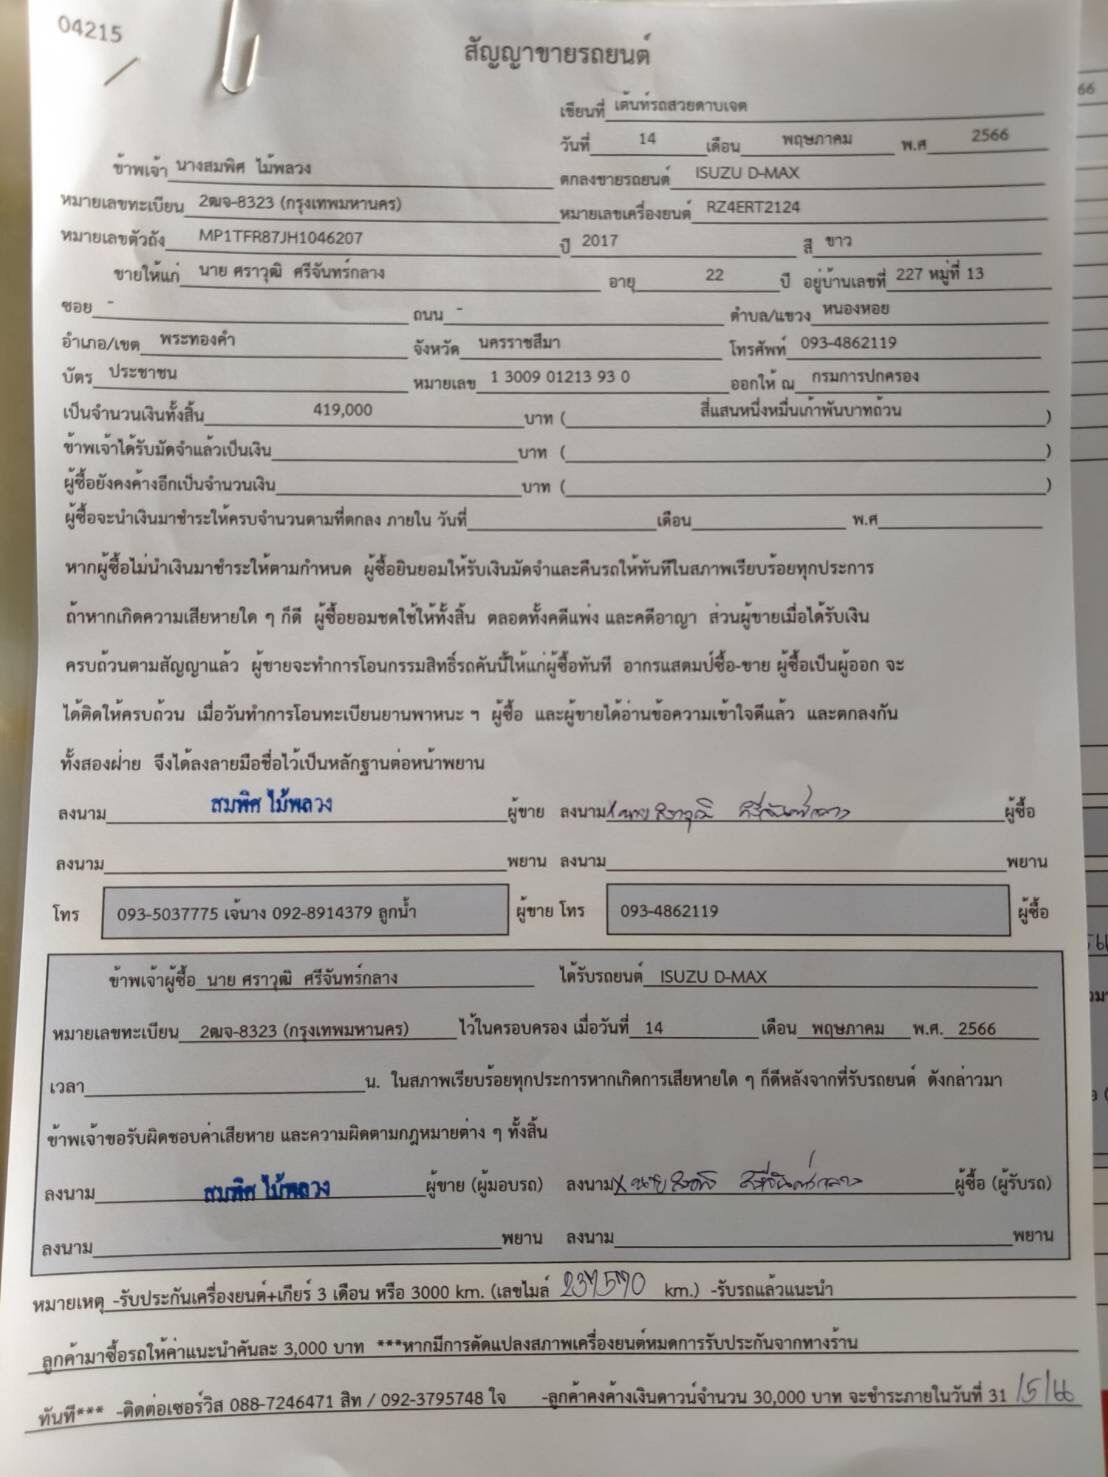 04215
สัญญาขายรถยนต์
เขียนที่ เต้นท์รถสวยดาบเจต
วันที่ 14 เดือน พฤษภาคม พ.ศ 2566
ข้าพเจ้า นางสมพิศ ไม้พลวง ตกลงขายรถยนต์ ISUZU D-MAX
หมายเลขทะเบียน 2ฒจ-8323 (กรุงเทพมหานคร) หมายเลขเครื่องยนต์ RZ4ERT2124
หมายเลขตัวถัง MP1TFR87JH1046207 ปี 2017 สี ขาว
ขายให้แก่ นาย ศราวุฒิ ศรีจันทร์กลาง อายุ 22 ปี อยู่บ้านเลขที่ 227 หมู่ที่ 13
ซอย - ถนน - ตำบล/แขวง หนองหอย
อำเภอ/เขต พระทองคำ จังหวัด นครราชสีมา โทรศัพท์ 093-4862119
บัตร ประชาชน หมายเลข 1 3009 01213 93 0 ออกให้ ณ กรมการปกครอง
เป็นจำนวนเงินทั้งสิ้น 419,000 บาท ( สี่แสนหนึ่งหมื่นเก้าพันบาทถ้วน )
ข้าพเจ้าได้รับมัดจำแล้วเป็นเงิน บาท ( )
ผู้ซื้อยังคงค้างอีกเป็นจำนวนเงิน บาท ( )
ผู้ซื้อจะนำเงินมาชำระให้ครบจำนวนตามที่ตกลง ภายใน วันที่ เดือน พ.ศ
หากผู้ซื้อไม่นำเงินมาชำระให้ตามกำหนด ผู้ซื้อยินยอมให้รับเงินมัดจำและคืนรถให้ทันทีในสภาพเรียบร้อยทุกประการ
ถ้าหากเกิดความเสียหายใด ๆ ก็ดี ผู้ซื้อยอมชดใช้ให้ทั้งสิ้น ตลอดทั้งคดีแพ่ง และคดีอาญา ส่วนผู้ขายเมื่อได้รับเงิน
ครบถ้วนตามสัญญาแล้ว ผู้ขายจะทำการโอนกรรมสิทธิ์รถคันนี้ให้แก่ผู้ซื้อทันที อากรแสตมป์ซื้อ-ขาย ผู้ซื้อเป็นผู้ออก จะ
ได้ติดให้ครบถ้วน เมื่อวันทำการโอนทะเบียนยานพาหนะ ฯ ผู้ซื้อ และผู้ขายได้อ่านข้อความเข้าใจดีแล้ว และตกลงกัน
ทั้งสองฝ่าย จึงได้ลงลายมือชื่อไว้เป็นหลักฐานต่อหน้าพยาน
ลงนาม สมพิศ ไม้พลวง ผู้ขาย ลงนาม นายศราวุฒิ ศรีจันทร์กลาง ผู้ซื้อ
ลงนาม พยาน ลงนาม พยาน
โทร 093-5037775 เจ้นาง 092-8914379 ลูกน้ำ ผู้ขาย โทร 093-4862119 ผู้ซื้อ
ข้าพเจ้าผู้ซื้อ นาย ศราวุฒิ ศรีจันทร์กลาง ได้รับรถยนต์ ISUZU D-MAX
หมายเลขทะเบียน 2ฒจ-8323 (กรุงเทพมหานคร) ไว้ในครอบครอง เมื่อวันที่ 14 เดือน พฤษภาคม พ.ศ. 2566
เวลา น. ในสภาพเรียบร้อยทุกประการหากเกิดการเสียหายใด ๆ ก็ดีหลังจากที่รับรถยนต์ ดังกล่าวมา
ข้าพเจ้าขอรับผิดชอบค่าเสียหาย และความผิดตามกฎหมายต่าง ๆ ทั้งสิ้น
ลงนาม สมพิศ ไม้พลวง ผู้ขาย (ผู้มอบรถ) ลงนาม นายศราวุฒิ ศรีจันทร์กลาง ผู้ซื้อ (ผู้รับรถ)
ลงนาม พยาน ลงนาม พยาน
หมายเหตุ -รับประกันเครื่องยนต์+เกียร์ 3 เดือน หรือ 3000 km. (เลขไมล์ 237590 km.) -รับรถแล้วแนะนำ
ลูกค้ามาซื้อรถให้ค่าแนะนำคันละ 3,000 บาท ***หากมีการดัดแปลงสภาพเครื่องยนต์หมดการรับประกันจากทางร้าน
ทันที*** -ติดต่อเซอร์วิส 088-7246471 สิท / 092-3795748 ใจ -ลูกค้าคงค้างเงินดาวน์จำนวน 30,000 บาท จะชำระภายในวันที่ 31 /5/66